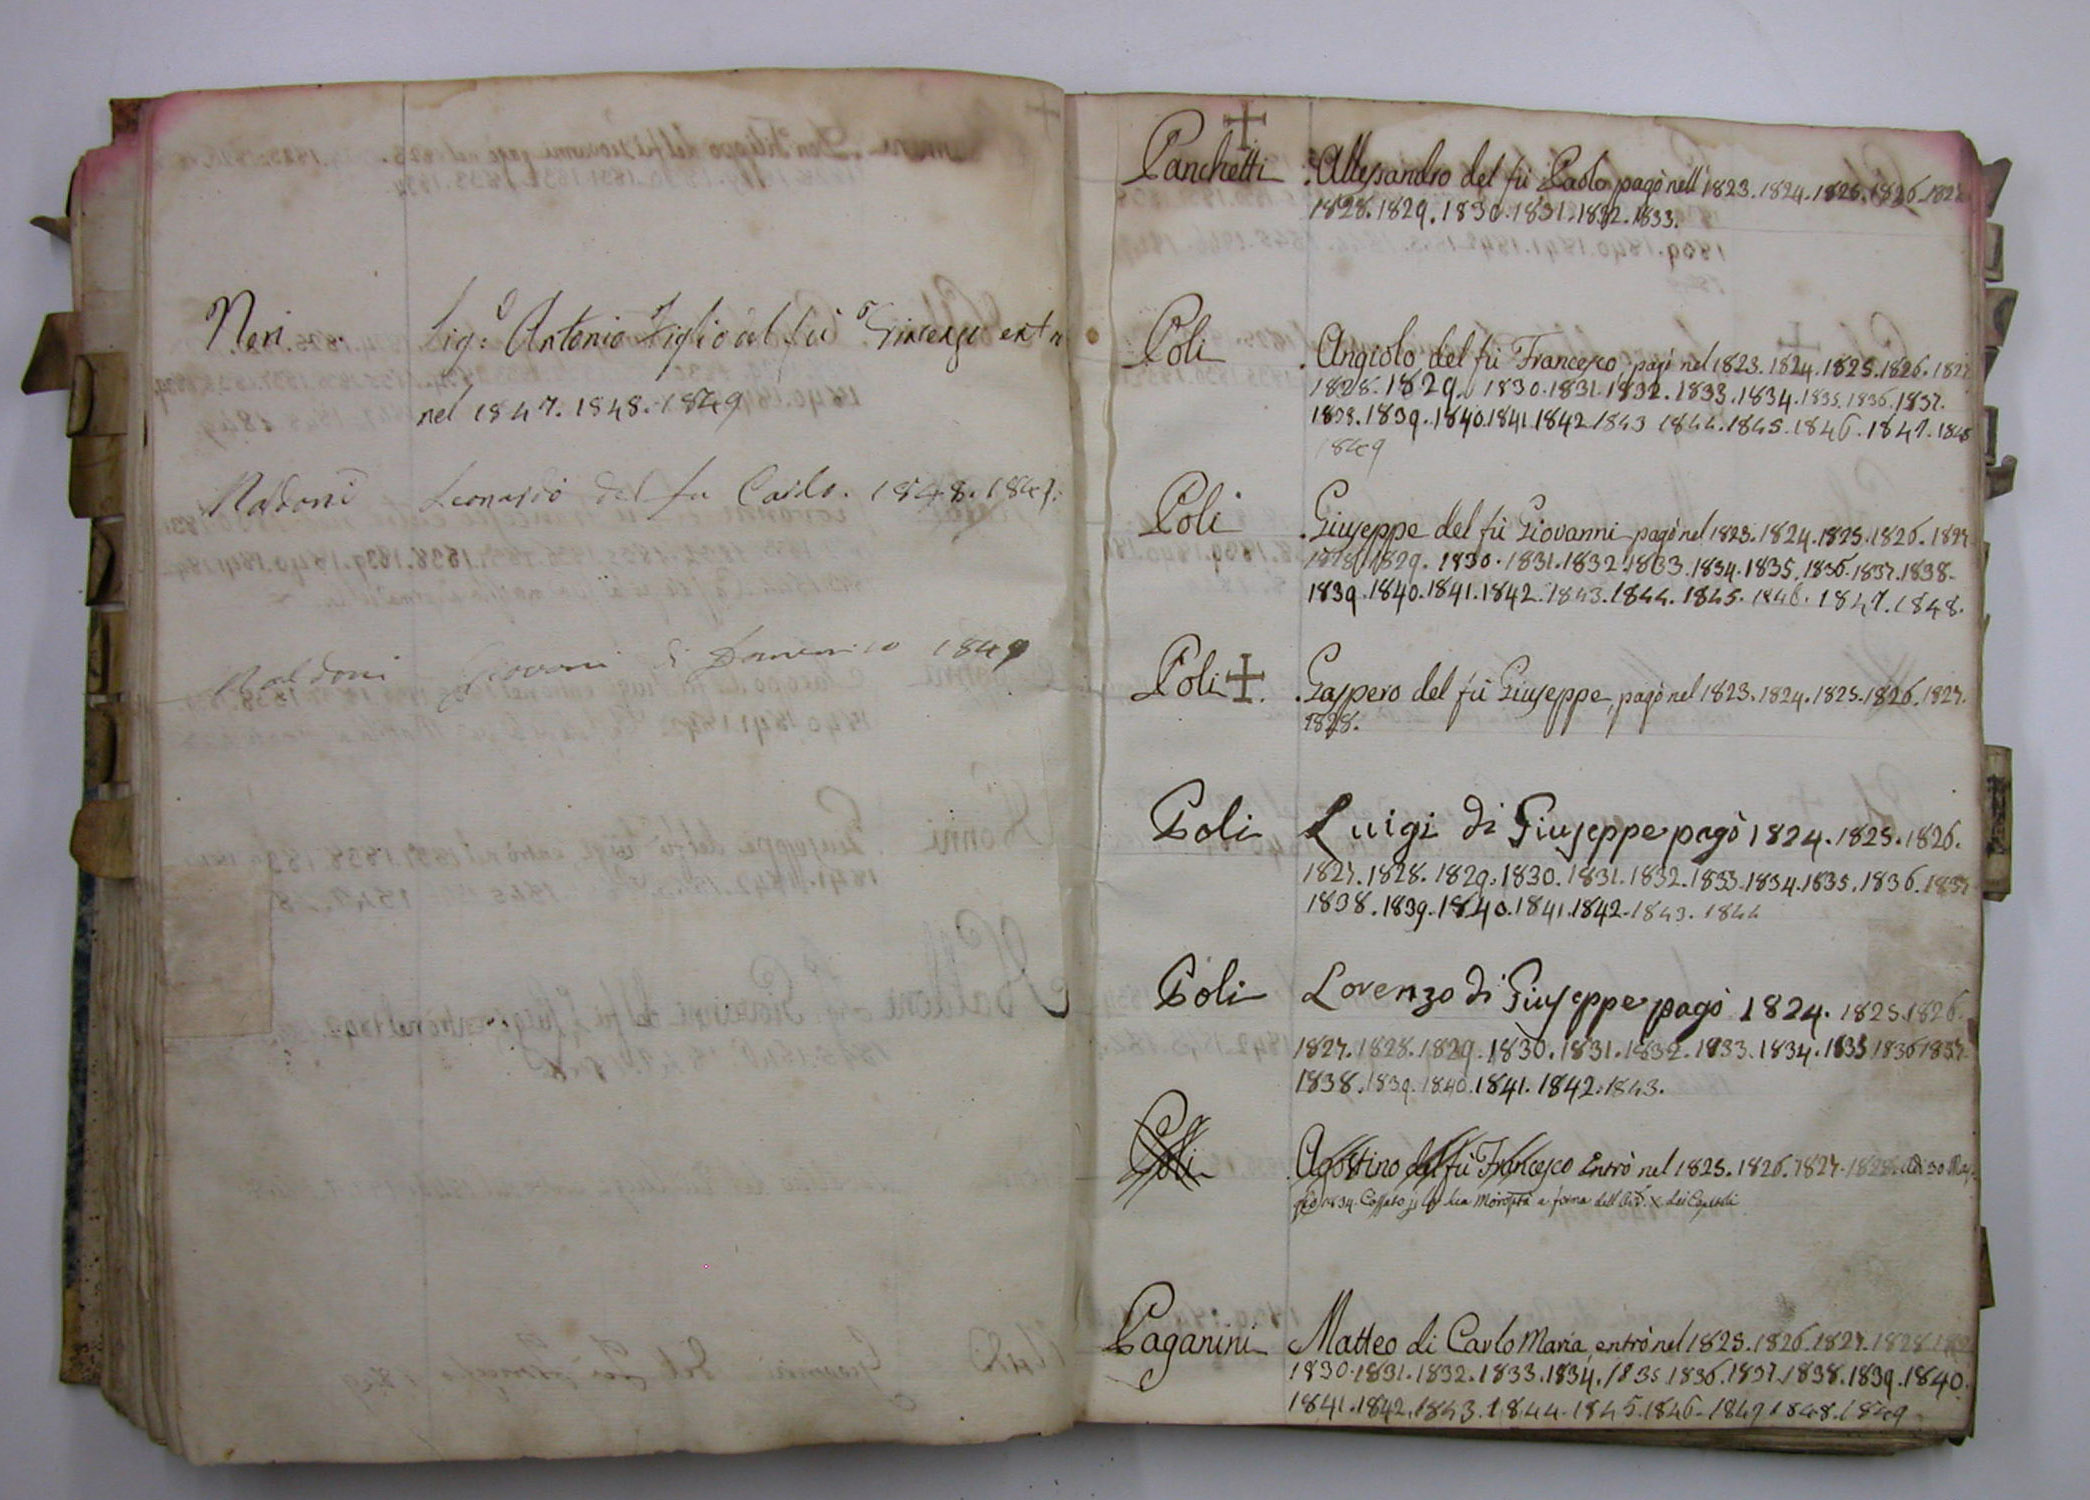 Neri Sig.e Antonio Figlio del fù Vincenzo entrò
nel 1847. 1848. 1849
Naldoni Leonardo del fu Carlo. 1848. 1849.
Naldoni Giovanni di Domenico 1849
Panchetti . Allessandro del fù Paolo, pagò nell' 1823. 1824. 1825. 1826. 1827
1828. 1829. 1830. 1831. 1832. 1833.
Poli . Angiolo del fù Francesco, pagò nel 1823. 1824. 1825. 1826. 1827
1828. 1829. 1830. 1831. 1832. 1833. 1834. 1835. 1836. 1837.
1838. 1839. 1840. 1841. 1842. 1843 1844. 1845. 1846. 1847. 1848
1849
Poli . Giuseppe del fù Giovanni pagò nel 1823. 1824. 1825. 1826. 1827
1828. 1829. 1830. 1831. 1832. 1833. 1834. 1835. 1836. 1837. 1838.
1839. 1840. 1841. 1842. 1843. 1844. 1845. 1846. 1847. 1848.
Poli . Gaspero del fù Giuseppe, pagò nel 1823. 1824. 1825. 1826. 1827.
1828.
Poli Luigi di Giuseppe pagò 1824. 1825. 1826.
1827. 1828. 1829. 1830. 1831. 1832. 1833. 1834. 1835. 1836. 1837
1838. 1839. 1840. 1841. 1842. 1843. 1844
Poli Lorenzo di Giuseppe pagò 1824. 1825. 1826.
1827. 1828. 1829. 1830. 1831. 1832. 1833. 1834. 1835 1836 1837.
1838. 1839. 1840. 1841. 1842. 1843.
Poli Agostino del fù Francesco Entrò nel 1825. 1826. 1827. 1828. Adì 30 Mag-
gio 1834. Cassato sua Morosità a forma dell' Art. X dei Capitoli
Paganini Matteo di Carlo Maria, entrò nel 1825. 1826. 1827. 1828. 1829
1830. 1831. 1832. 1833. 1834. 1835. 1836. 1837. 1838. 1839. 1840.
1841. 1842. 1843. 1844. 1845. 1846. 1847 1848. 1849.